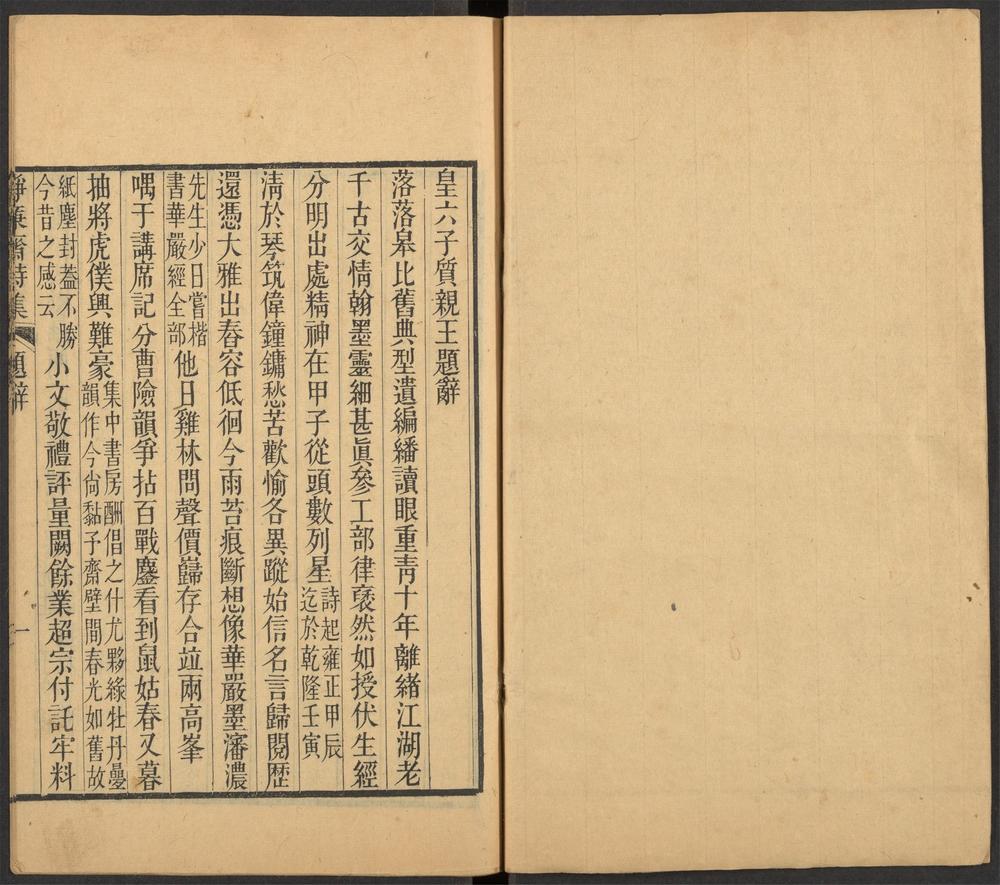 皇六子質親王題辭
落落皋比舊典型遺編繙讀眼重青十年離緒江湖老
千古交情翰墨靈細甚眞參工部律褎然如授伏生經
分明出處精神在甲子從頭數列星詩起雍正甲辰迄於乾隆壬寅
淸於琴筑偉鐘鏞愁苦歡愉各異蹤始信名言歸閱歷
還憑大雅出舂容低徊今雨苔痕斷想像華嚴墨瀋濃
先生少日嘗楷書華嚴經全部他日雞林問聲價巋存合竝兩高峯
喁于講席記分曹險韻爭拈百戰鏖看到鼠姑春又暮
抽將虎僕興難豪集中書房酬倡之什尤夥綠牡丹疊韻作今尙黏予齋壁間春光如舊故
紙塵封蓋不勝今昔之感云小文敬禮評量闕餘業超宗付託牢料
齋詩集 題辭 一